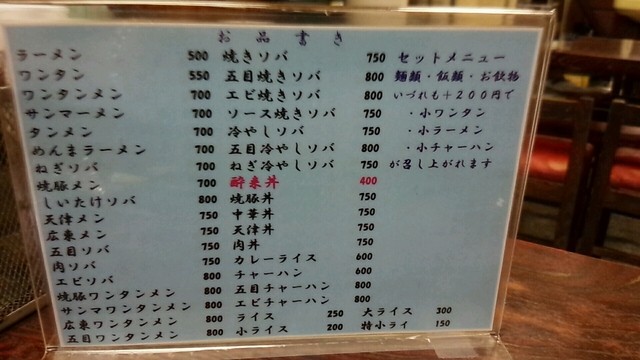 お品書き
ラーメン 500
ワンタン 550
ワンタンメン 700
サンマーメン 700
タンメン 700
めんまラーメン 700
ねぎソバ 700
焼豚メン 700
しいたけソバ 800
天津メン 750
広東メン 750
五目ソバ 750
肉ソバ 750
エビソバ 800
焼豚ワンタンメン 800
サンマワンタンメン 800
広東ワンタンメン 800
五目ワンタンメン 800
焼きソバ 750
五目焼きソバ 800
エビ焼きソバ 800
ソース焼きソバ 750
冷やしソバ 750
五目冷やしソバ 800
ねぎ冷やしソバ 750
酔来丼 400
焼豚丼 750
中華丼 750
天津丼 750
肉丼 750
カレーライス 600
チャーハン 600
五目チャーハン 800
エビチャーハン 800
ライス 250
小ライス 200
大ライス 300
特小ライ 150
セットメニュー
麺類・飯類・お飲物
いづれも＋２００円で
・小ワンタン
・小ラーメン
・小チャーハン
が召し上がれます